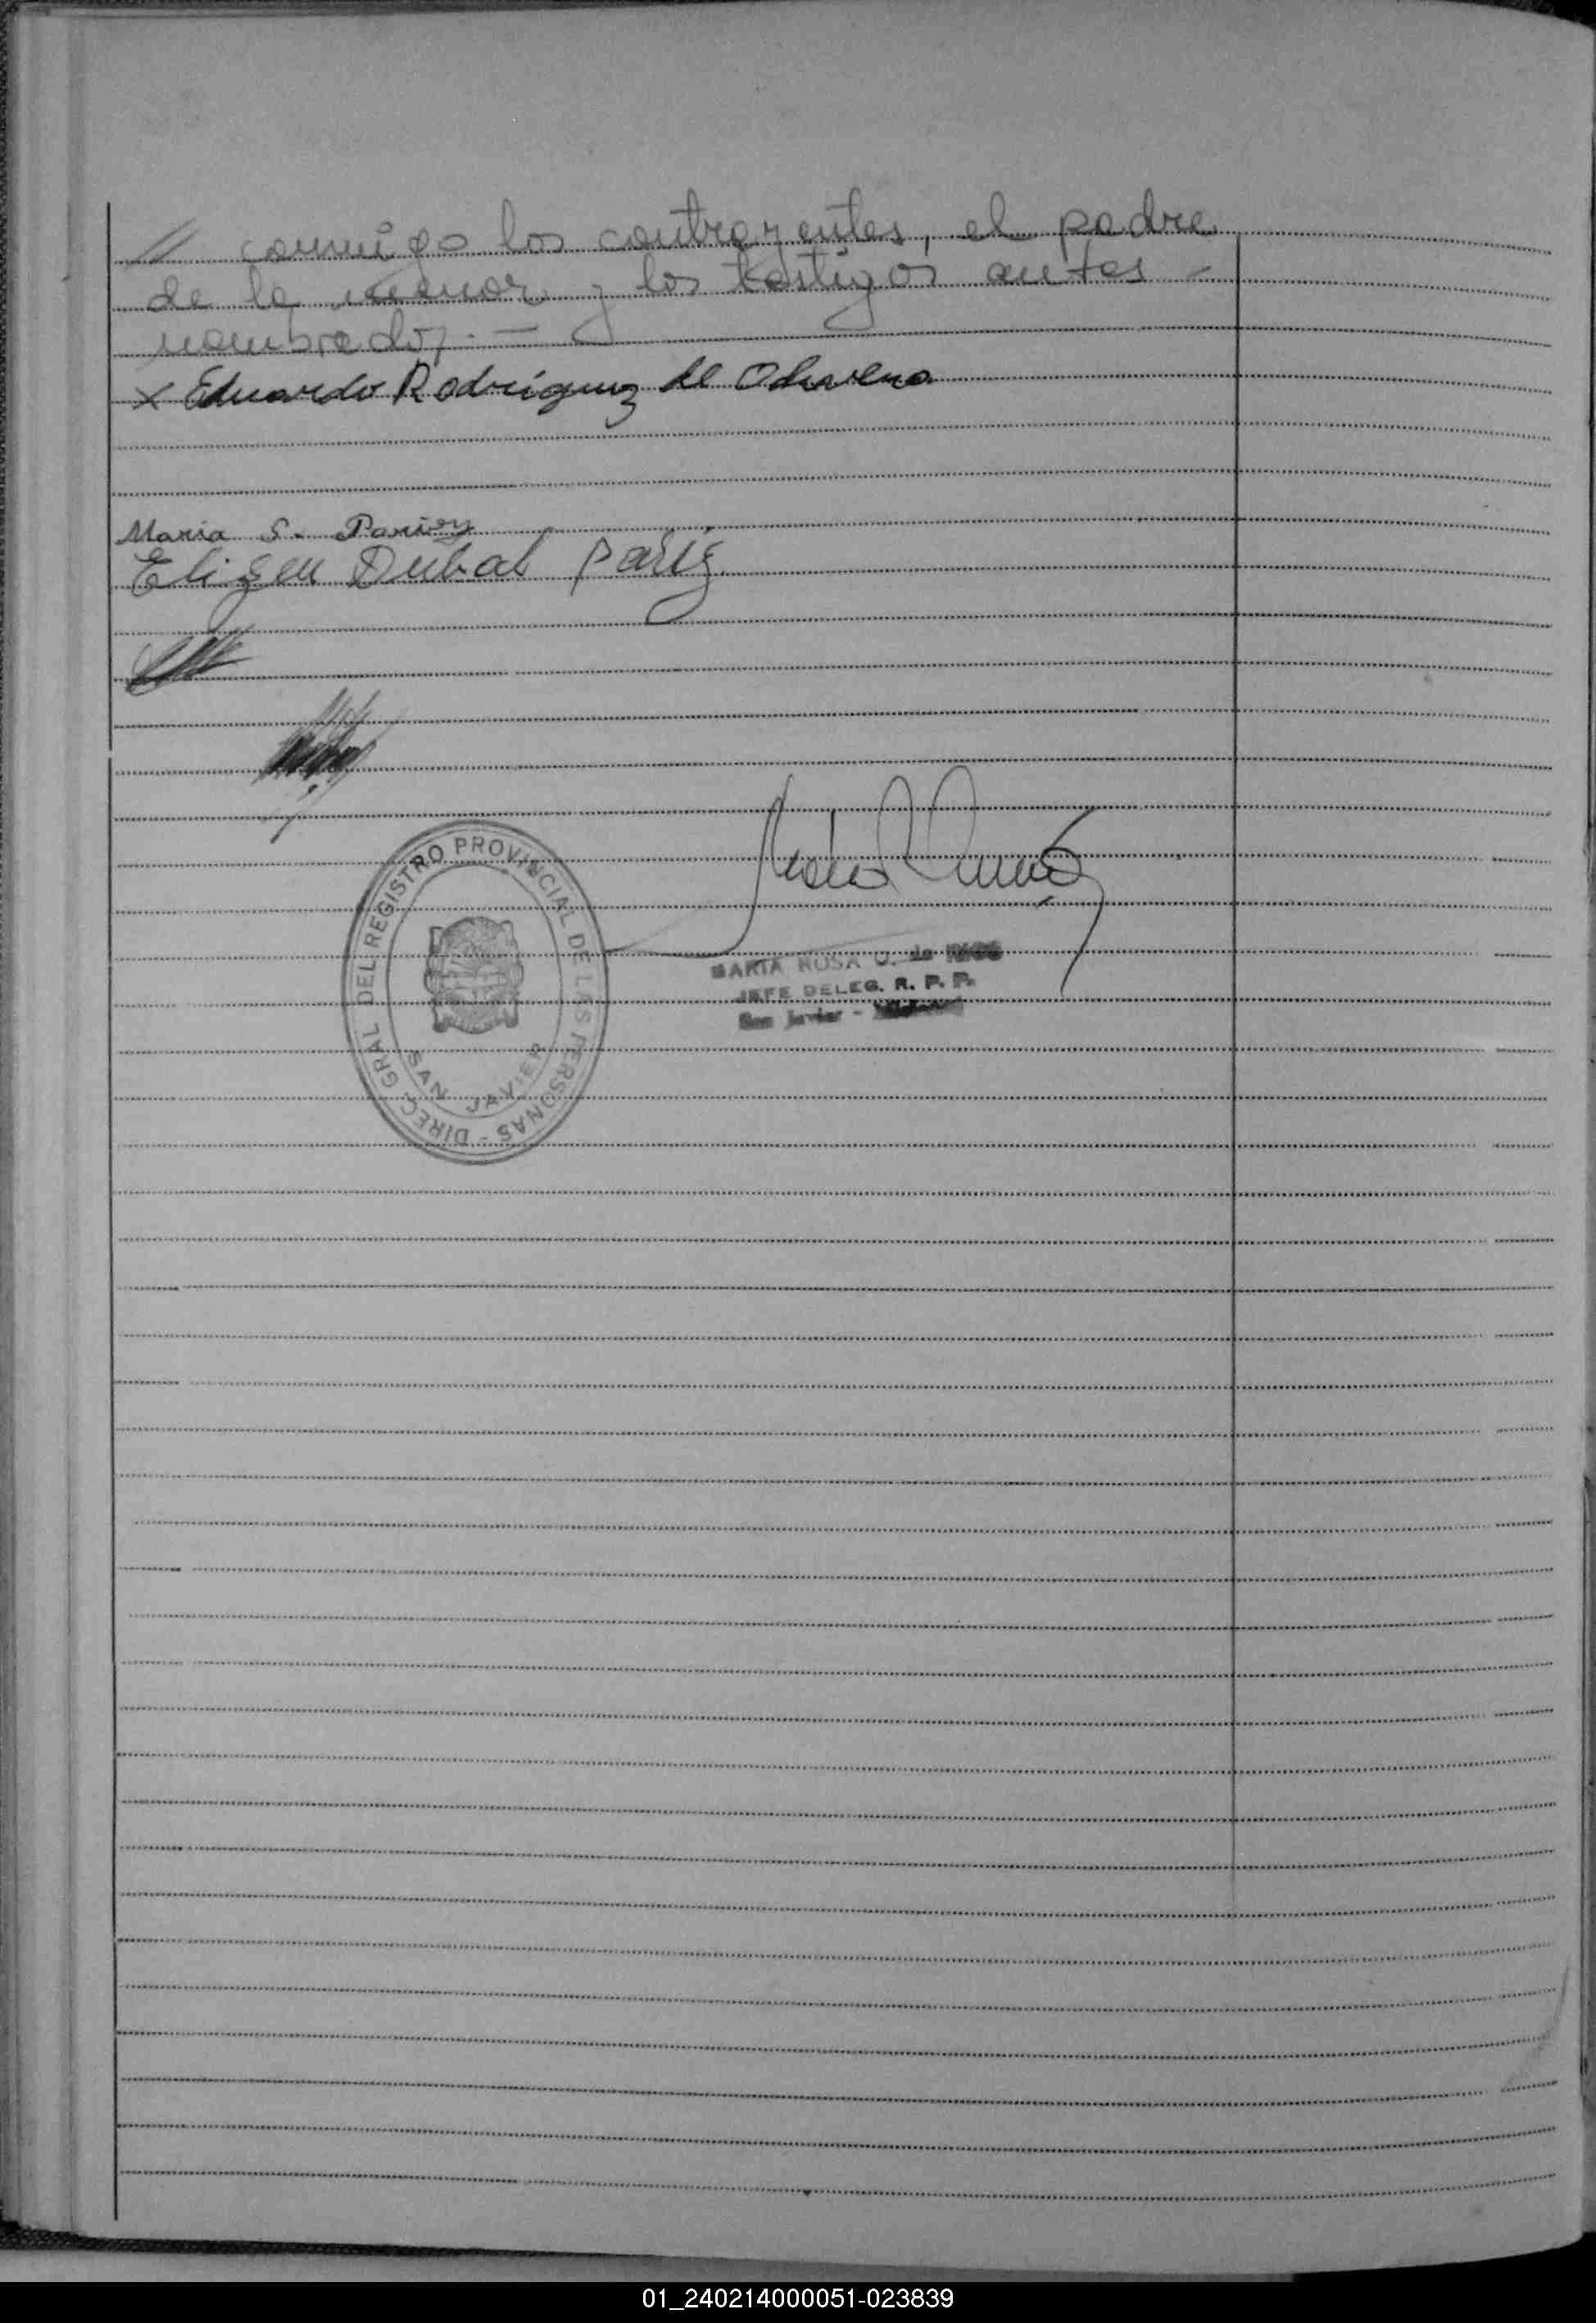 // conmigo los contrayentes, el padre
de la menor y los testigos antes -
nombrados. —
x Eduardo Rodriguez de Olivera
Maria S.
Elizeu Dubal Pariz
DIREC. GRAL DEL REGISTRO PROVINCIAL DE LAS PERSONAS -
SAN JAVIER
MARIA ROSA O. de RIOS
JEFE DELEG. R. P. P.
San Javier - Misiones
01_240214000051-023839